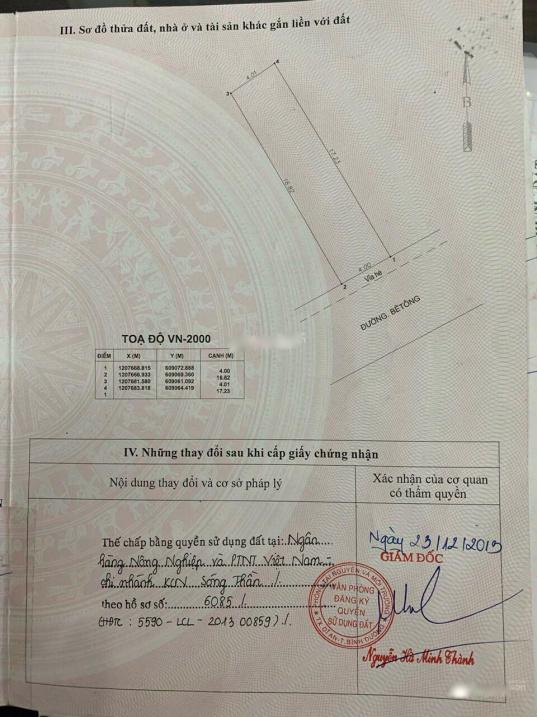 III. Sơ đồ thửa đất, nhà ở và tài sản khác gắn liền với đất
4
4.01
3
B
17.23
16.82
4.00
1
Vỉa hè
2
ĐƯỜNG BÊTÔNG
TOẠ ĐỘ VN-2000
ĐIỂM X (M) Y (M) CẠNH (M)
1 1207668.815 609072.888
4.00
2 1207666.933 609069.360
16.82
3 1207681.580 609061.092
4.01
4 1207683.818 609064.419
17.23
1
IV. Những thay đổi sau khi cấp giấy chứng nhận
Nội dung thay đổi và cơ sở pháp lý
Xác nhận của cơ quan
có thẩm quyền
Thế chấp bằng quyền sử dụng đất tại: Ngân
hàng Nông Nghiệp và PTNT Việt Nam -
chi nhánh KCN Sóng Thần /.
theo hồ sơ số: 6085 /.
(HĐTC : 5590 - LCL - 2013 00859) /.
Ngày 23/12/2013
GIÁM ĐỐC
PHÒNG TÀI NGUYÊN VÀ MÔI TRƯỜNG
VĂN PHÒNG
ĐĂNG KÝ
QUYỀN
SỬ DỤNG ĐẤT
TX. DĨ AN - T. BÌNH DƯƠNG
Nguyễn Hà Minh Thành